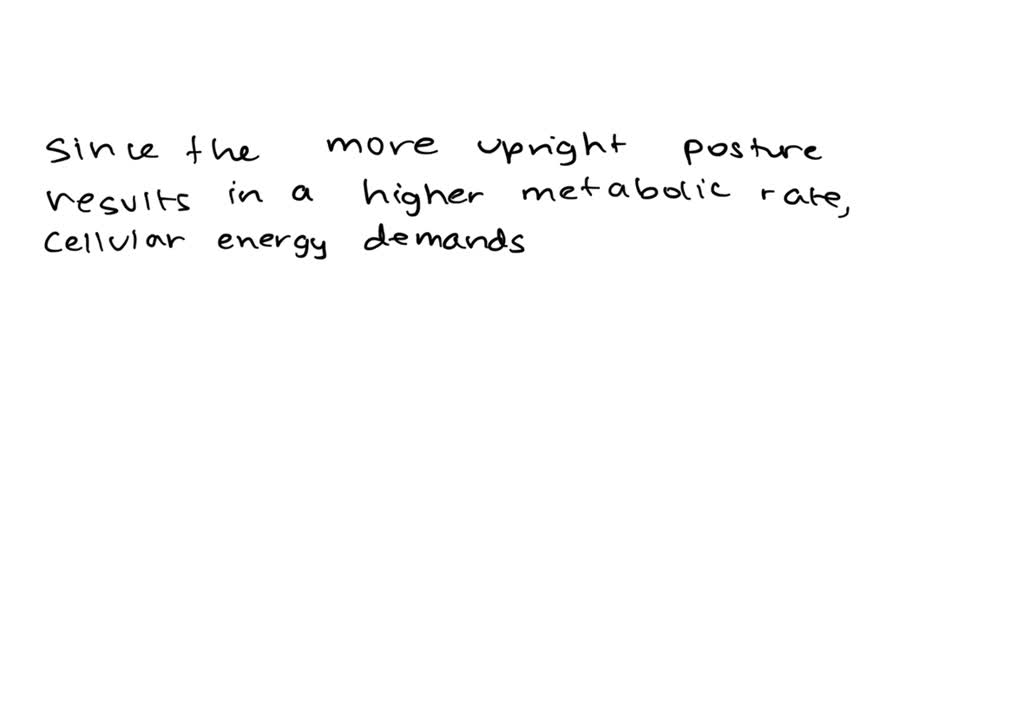 since the more upright posture
results in a higher metabolic rate,
cellular energy demands